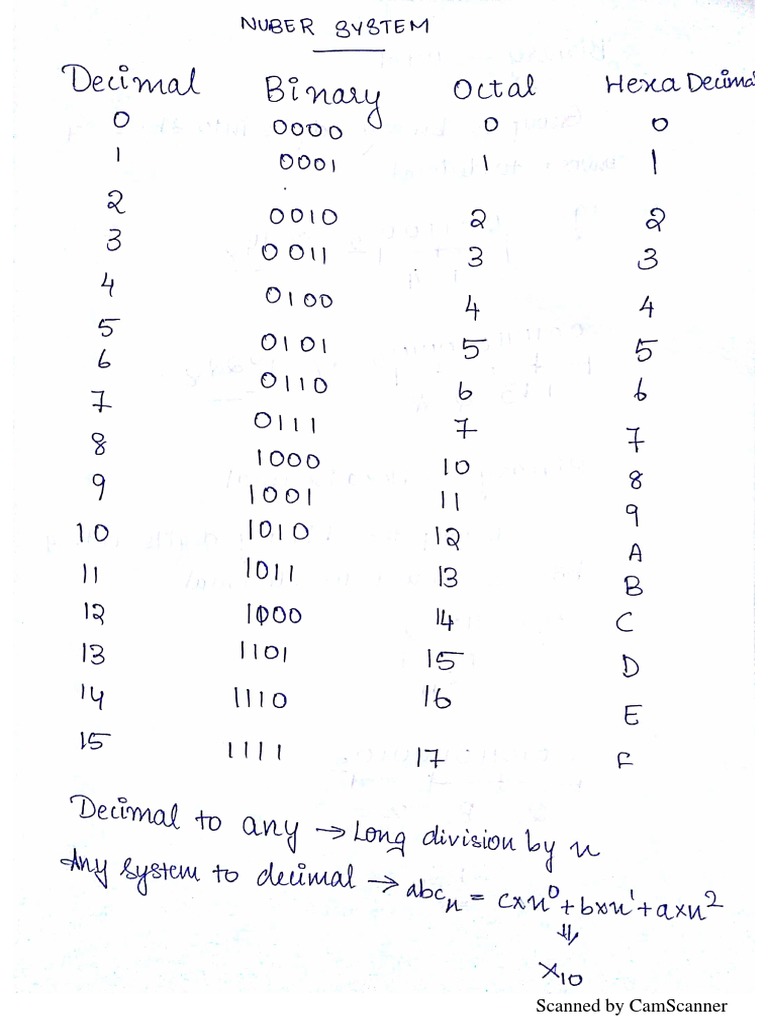 NUBER SYSTEM
Decimal Binary Octal Hexa Decima
0 0000 0 0
1 0001 1 1
2 0010 2 2
3 0011 3 3
4 0100 4 4
5 0101 5 5
6 0110 6 6
7 0111 7 7
8 1000 10 8
9 1001 11 9
10 1010 12 A
11 1011 13 B
12 1000 14 C
13 1101 15 D
14 1110 16 E
15 1111 17 F
Decimal to any → Long division by n
Any system to decimal → abcₙ = c×n⁰+b×n¹+a×n²
⇓
x₁₀
Scanned by CamScanner